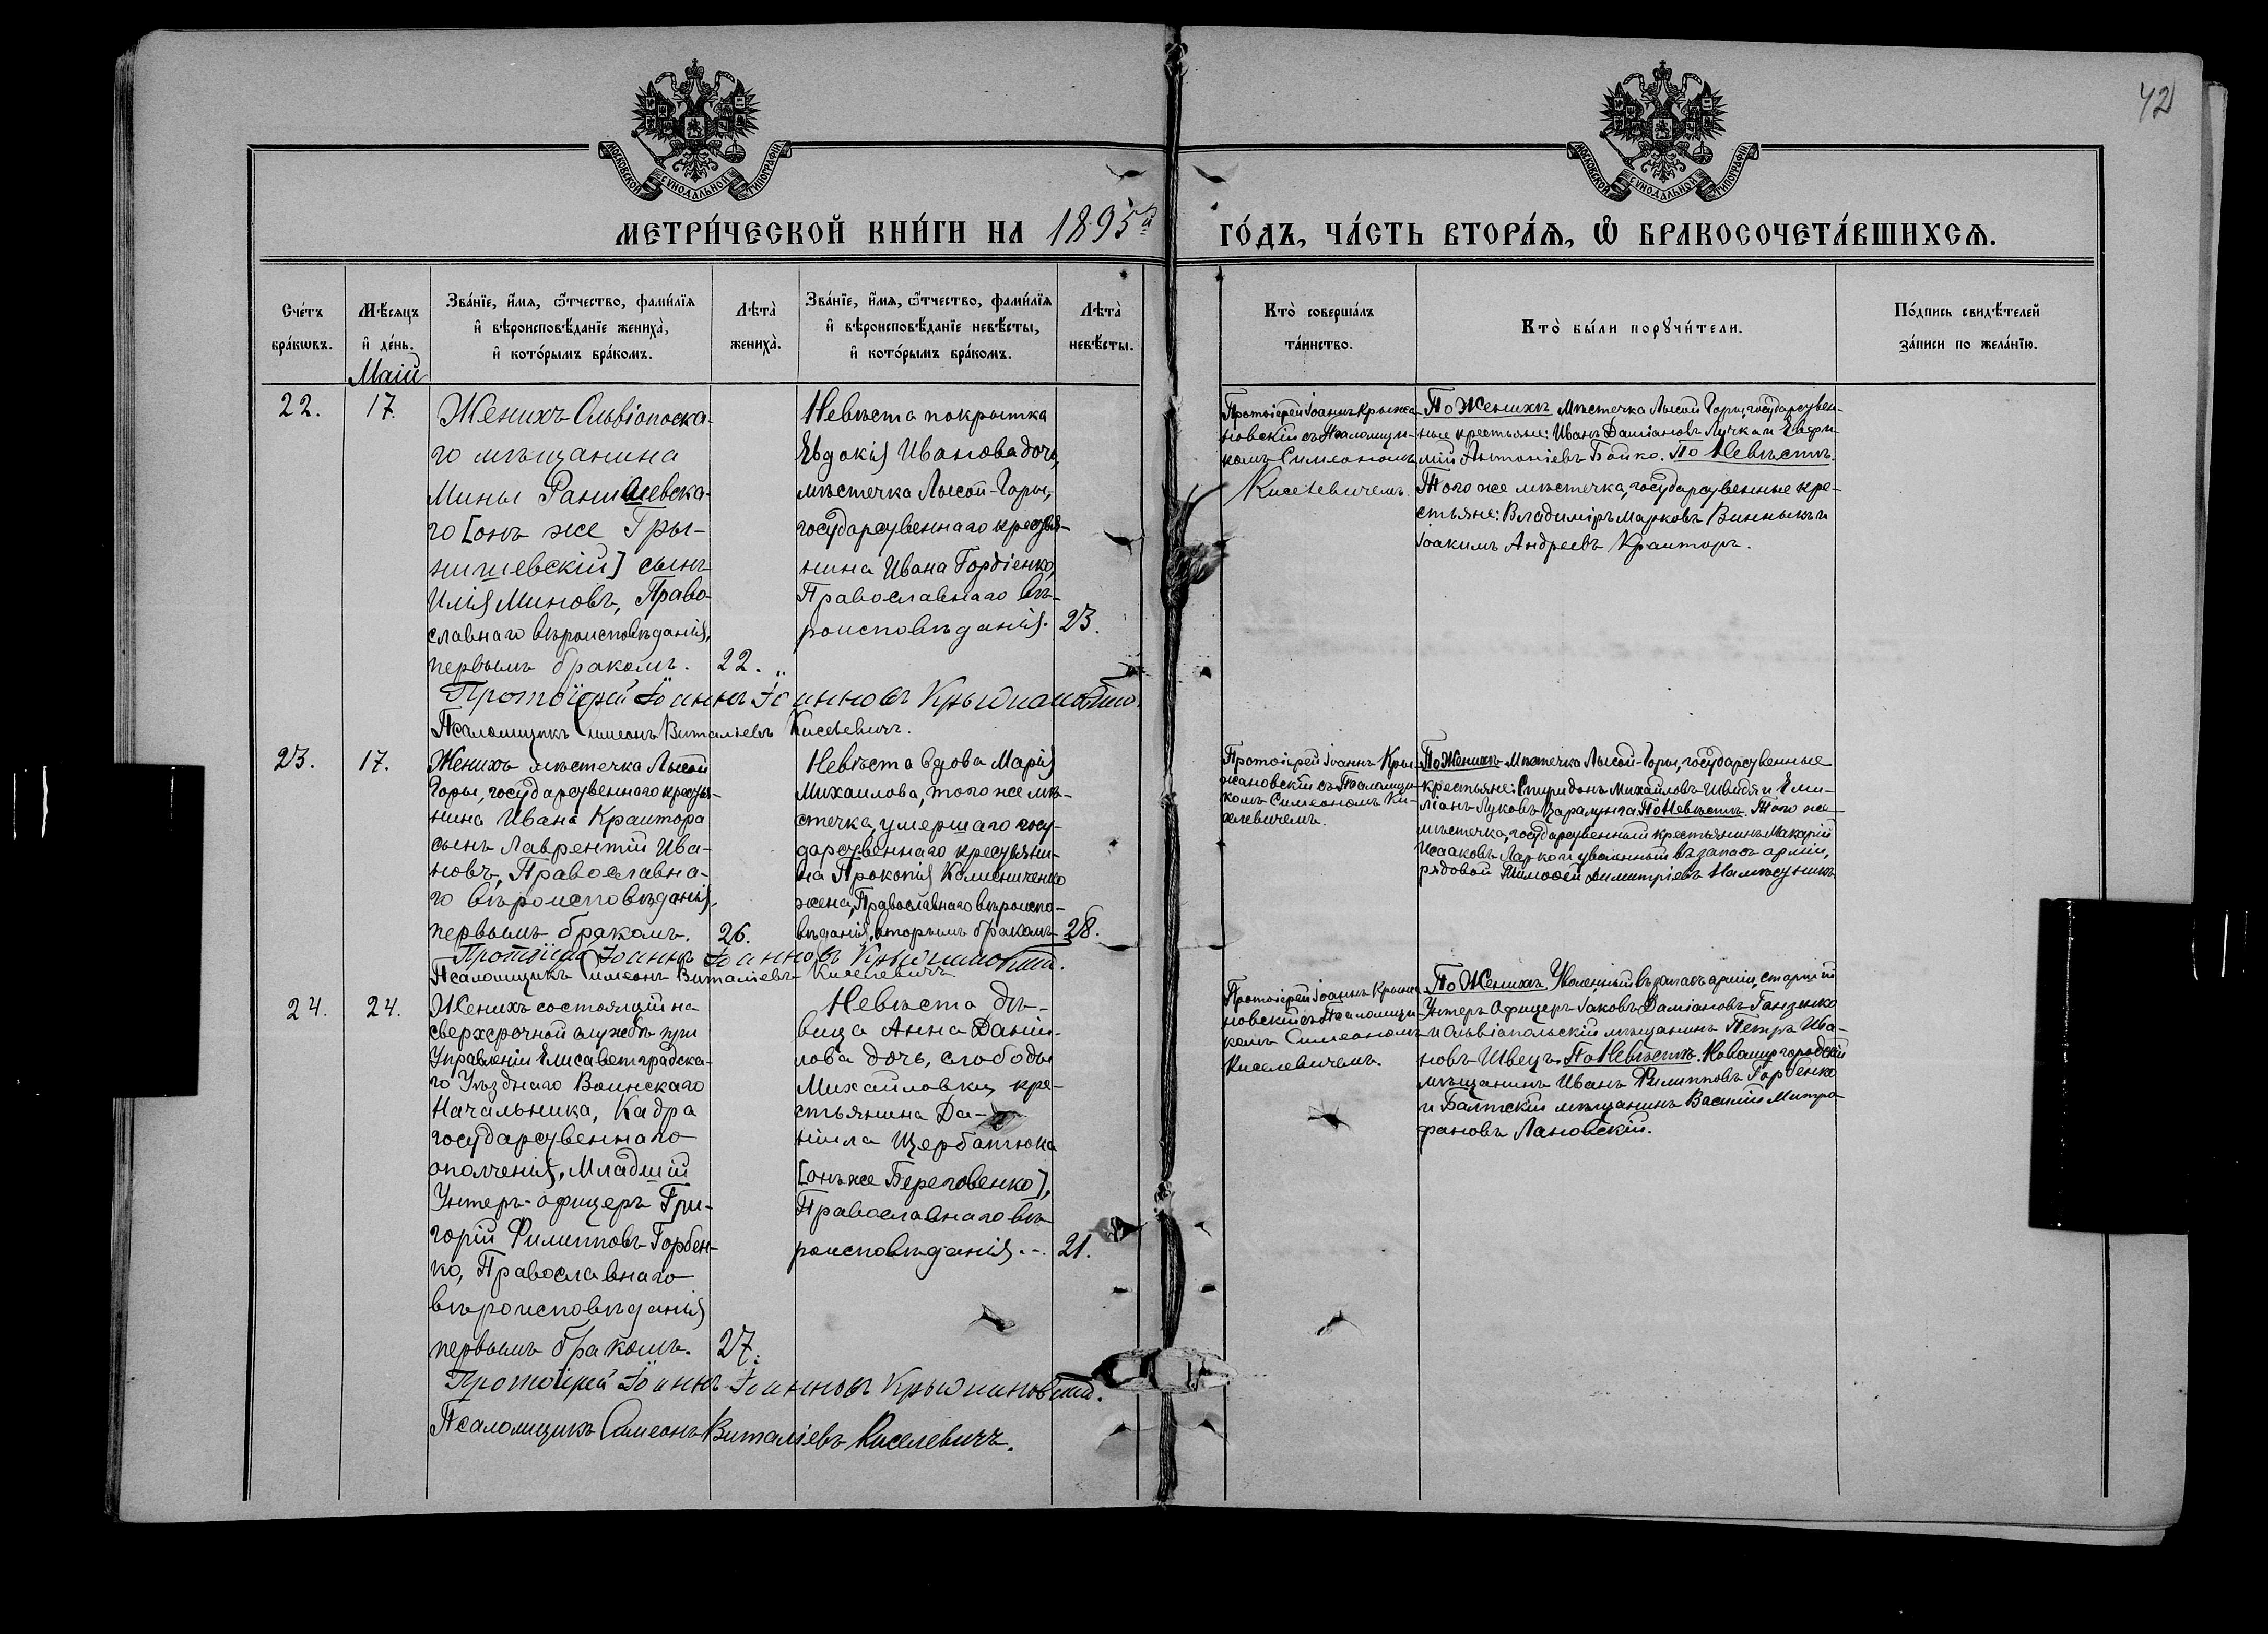 42
МОСКОВСКОЙ СѴНОДАЛЬНОЙ ТИПОГРАФІИ
МОСКОВСКОЙ СѴНОДАЛЬНОЙ ТИПОГРАФІИ
МЕТРИ́ЧЕСКОЙ КНИ́ГИ НА 1895й ГО́ДЪ, ЧА́СТЬ ВТОРА́Ѧ, Ѽ БРАКОСОЧЕТА́ВШИХСѦ.
Сче́тъ
бра́кωвъ.
Мѣ́сяцъ
и де́нь.
Маій
Зва́нїе, и́мя, ѻ҆́тчество, фами́лїя
и вѣроисповѣ́данїе жениха̀,
и кото́рымъ бра́комъ.
Лѣта̀
жениха̀.
Зва́нїе, и́мя, ѻ҆́тчество, фами́лїя
и вѣроисповѣ́данїе невѣ́сты,
и кото́рымъ бра́комъ.
Лѣта̀
невѣ́сты.
Кто̀ соверша́лъ
та́инство.
Кто̀ бы́ли порꙋчи́тели.
По́дпись свидѣ́телей
за́писи по жела́нїю.
22.
17.
Женихъ Ольвіопольска-
го мѣщанина
Мины Ранишевска-
го [онъ же Гры-
нишевскій] сынъ
Илія Миновъ, Право-
славнаго вѣроисповѣданія,
первымъ бракомъ.
22.
Невѣста покрытка
Евдокія Иванова дочь,
мѣстечка Лысой-Горы,
государственнаго крестья-
нина Ивана Гордіенко,
Православнаго вѣ-
роисповѣданія.
23.
Протоіерей Іоаннъ Крыжа-
новскій съ Псаломщи-
комъ Симеономъ
Киселевичемъ.
По Женихѣ Мѣстечка Лысой Горы, государствен-
ные крестьяне: Иванъ Даміановъ Лучка и Евфи-
мій Антоніевъ Бойко. По Невѣстѣ.
Того же мѣстечка, государственные кре-
стьяне: Владиміръ Марковъ Винныкъ и
Іоакимъ Андреевъ Краиторъ.
Протоіерей Іоаннъ Іоанновъ Крыжановскій.
Псаломщикъ Симеонъ Виталіевъ Киселевичъ.
23.
17.
Женихъ мѣстечка Лысой
Горы, государственнаго крестья-
нина Ивана Краитора
сынъ Лаврентій Ива-
новъ, Православна-
го вѣроисповѣданія,
первымъ бракомъ.
26.
Невѣста вдова Марія
Михаилова, того же мѣ-
стечка, умершаго госу-
дарственнаго крестьяни-
на Прокопія Колисниченко
жена, Православнаго вѣроиспо-
вѣданія, вторымъ бракомъ
28.
Протоіерей Іоаннъ Кры-
жановскій съ Псаломщи-
комъ Симеономъ Ки-
селевичемъ.
По Женихѣ Мѣстечка Лысой-Горы, государственные
крестьяне: Спиридонъ Михайловъ Швидя и Еми-
ліанъ Луковъ Царалунга. По Невѣстѣ. Того же
мѣстечка, государственный крестьянинъ Макарій
Исааковъ Ларко и уволенный въ запасъ арміи,
рядовой Тимоѳей Димитріевъ
Протоіерей Іоаннъ Іоанновъ Крыжановскій.
Псаломщикъ Симеонъ Виталіевъ Киселевичъ
24.
24.
Женихъ состоящій на
сверхсрочной службѣ при
Управленіи Елисаветградска-
го Уѣзднаго Воинскаго
Начальника, Кадра
государственнаго
ополченія, Младшій
Унтеръ-офицеръ Гри-
горій Филипповъ Горбен-
ко, Православнаго
вѣроисповѣданія
первымъ бракомъ.
27.
Невѣста дѣ-
вица Анна Даніи-
лова дочь, слободы
Михайловки, кре-
стьянина Да-
ніила Щербатюка
[онъ же Береговенко],
Православнаго вѣ-
роисповѣданія.
21.
Протоіерей Іоаннъ Крыжа-
новскій съ Псаломщи-
комъ Симеономъ
Киселевичемъ.
По Женихѣ. Уволенный въ запасъ арміи, старшій
Унтеръ Офицеръ Іаковъ Даміановъ Ганзенко
и Ольвіопольскій мѣщанинъ Петръ Ива-
новъ Швецъ. По Невѣстѣ. Новомиргородскій
мѣщанинъ Иванъ Филипповъ Горбенко
и Балтскій мѣщанинъ Василій Митро-
фановъ Лановскій.
Протоіерей Іоаннъ Іоанновъ Крыжановскій.
Псаломщикъ Симеонъ Виталіевъ Киселевичъ.